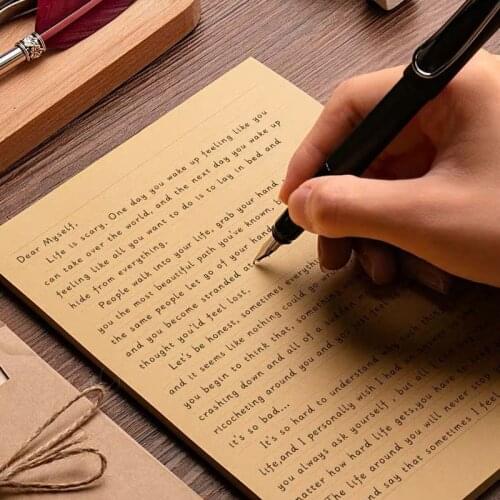 Dear Myself,
Life is scary. One day you wake up feeling like you
can take over the world, and the next day you wake up
feeling like all you want to do is to lay in bed and
hide from everything.
People walk into your life, grab your hand,
you the most beautiful path you've known,
the same people let go of your hand
and you become stranded and
thought you'ld feel lost.
Let's be honest, sometimes everything
and it seems like nothing could go
you begin to think that, something
crashing down and all of a sudden
ricocheting around you and you just
it's so bad...
It's so hard to understand why such
life,and I personally wish I had an
you always ask yourself , but all
matter how hard life gets,you have to
The life around you will never stop
I say that sometimes I feel